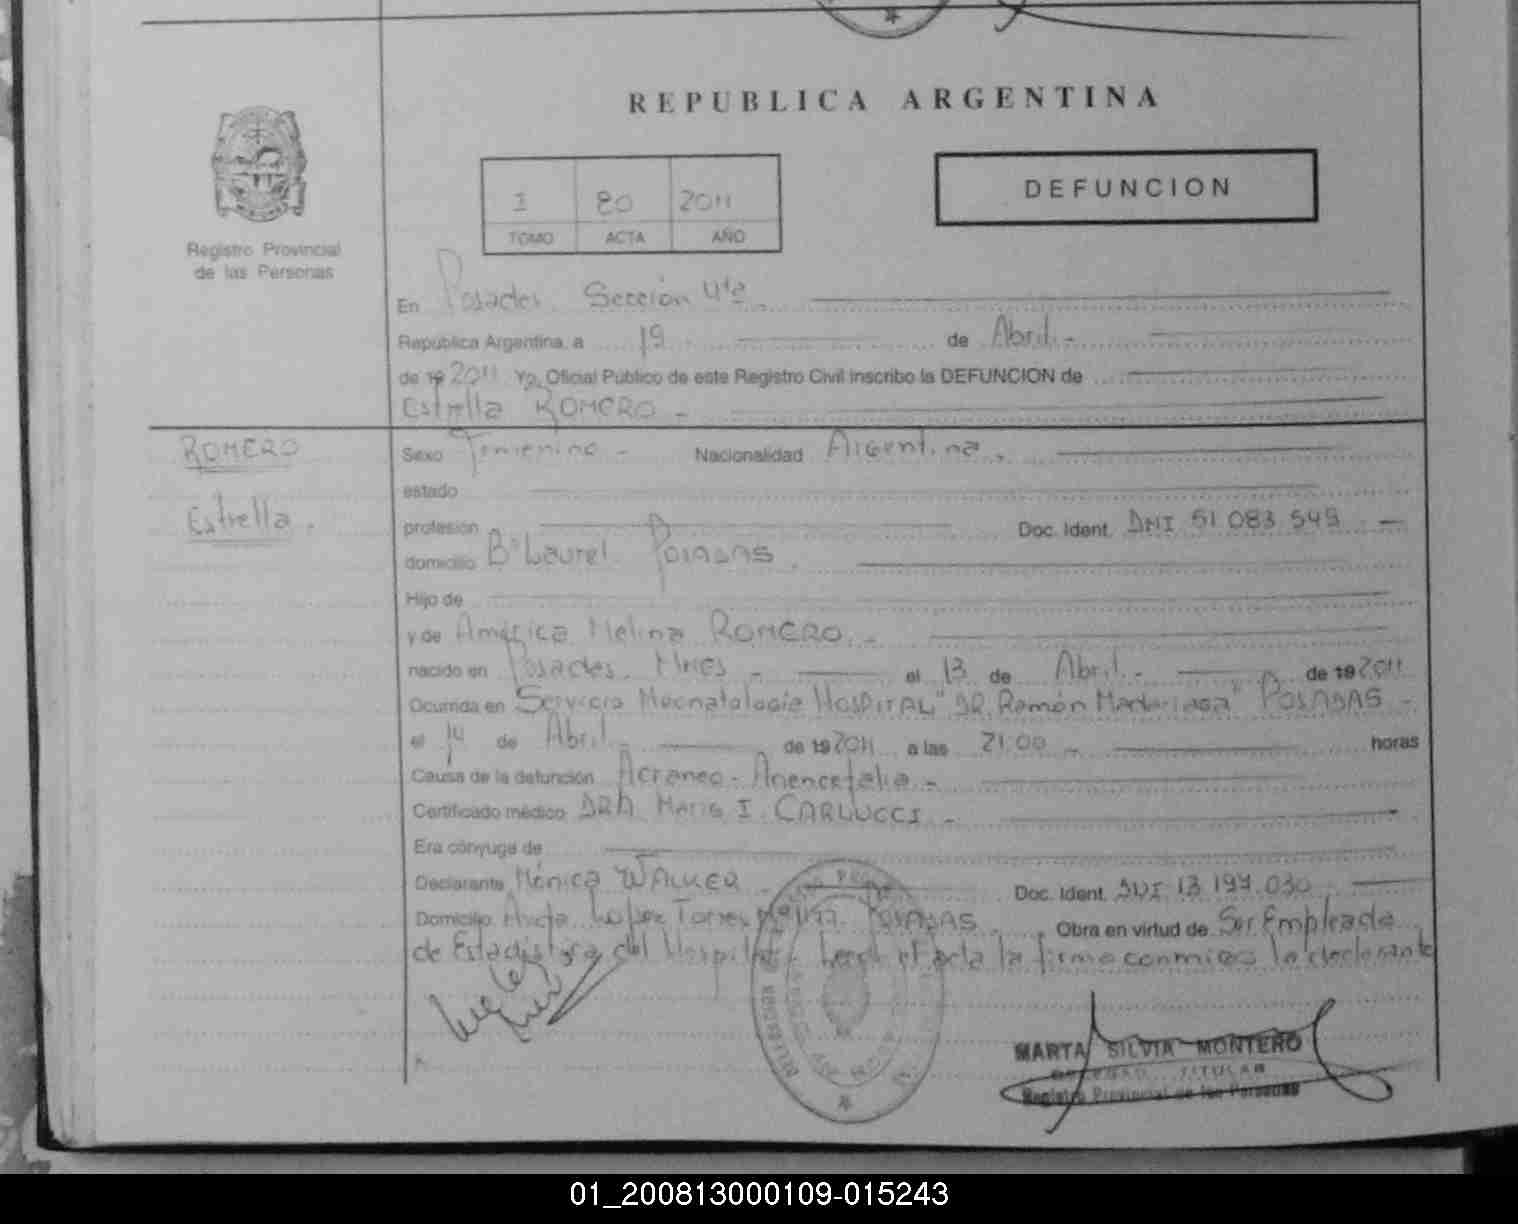 REPUBLICA ARGENTINA
Registro Provincial
de las Personas
I 80 2011
TOMO ACTA AÑO
DEFUNCION
En Posadas Sección 4ta
República Argentina, a 19 de Abril.-
de 19 2011 Yo, Oficial Público de este Registro Civil inscribo la DEFUNCION de
Estrella ROMERO -
ROMERO
Estrella.
Sexo Femenino - Nacionalidad Argentina.
estado
profesión Doc. Ident. DNI 51.083.549 -
domicilio Bº Laurel. POSADAS.
Hijo de
y de América Melina ROMERO. -
nacido en Posadas. Mnes - el 13 de Abril.- de 19 2011
Ocurrida en Servicio Neonatología HOSPITAL "DR. Ramón Madariaga" POSADAS -
el 14 de Abril. de 19 2011 a las 21:00 - horas
Causa de la defunción Acraneo - Anencefalia -
Certificado médico DRA. Maria I. CARLUCCI -
Era cónyuge de
Declarante Mónica Doc. Ident. DNI 13.197.030
Domicilio Avda. Lopez Torres POSADAS. Obra en virtud de Ser Empleada
de Estadistica del Hospital. el acta la firma conmigo la declarante
MARTA SILVIA MONTERO
TITULAR
Registro Provincial de las Personas
01_200813000109-015243